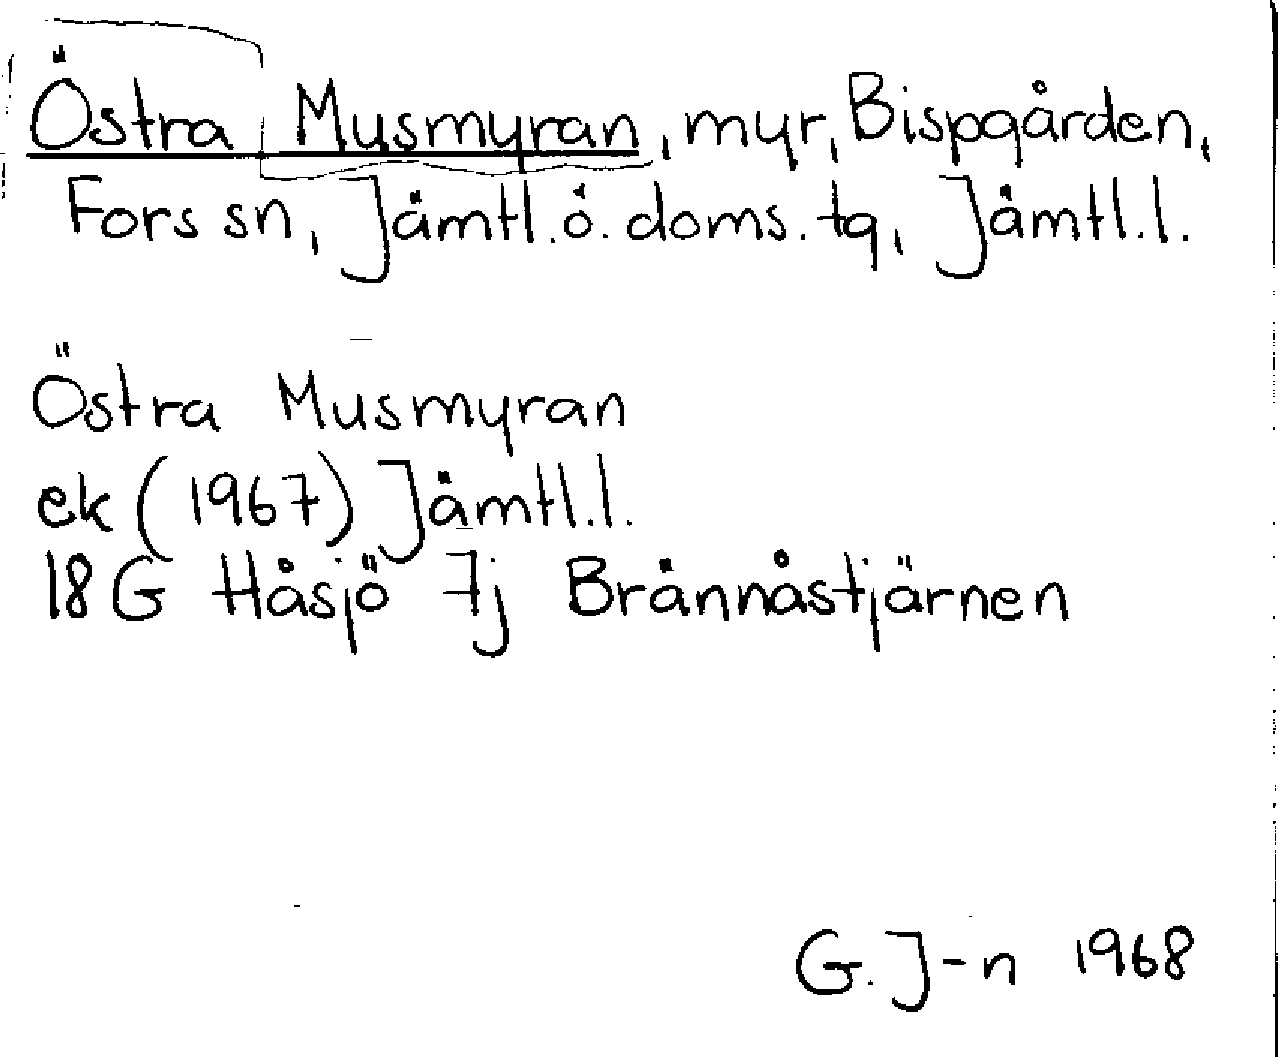 Östra Musmyran, myr, Bispgården,
Fors sn, Jämtl.ö. doms. tg, Jämtl.l.
Östra Musmyran
ek (1967) Jämtl.l.
18G Håsjö 7j Brännåstjärnen
G. J-n 1968